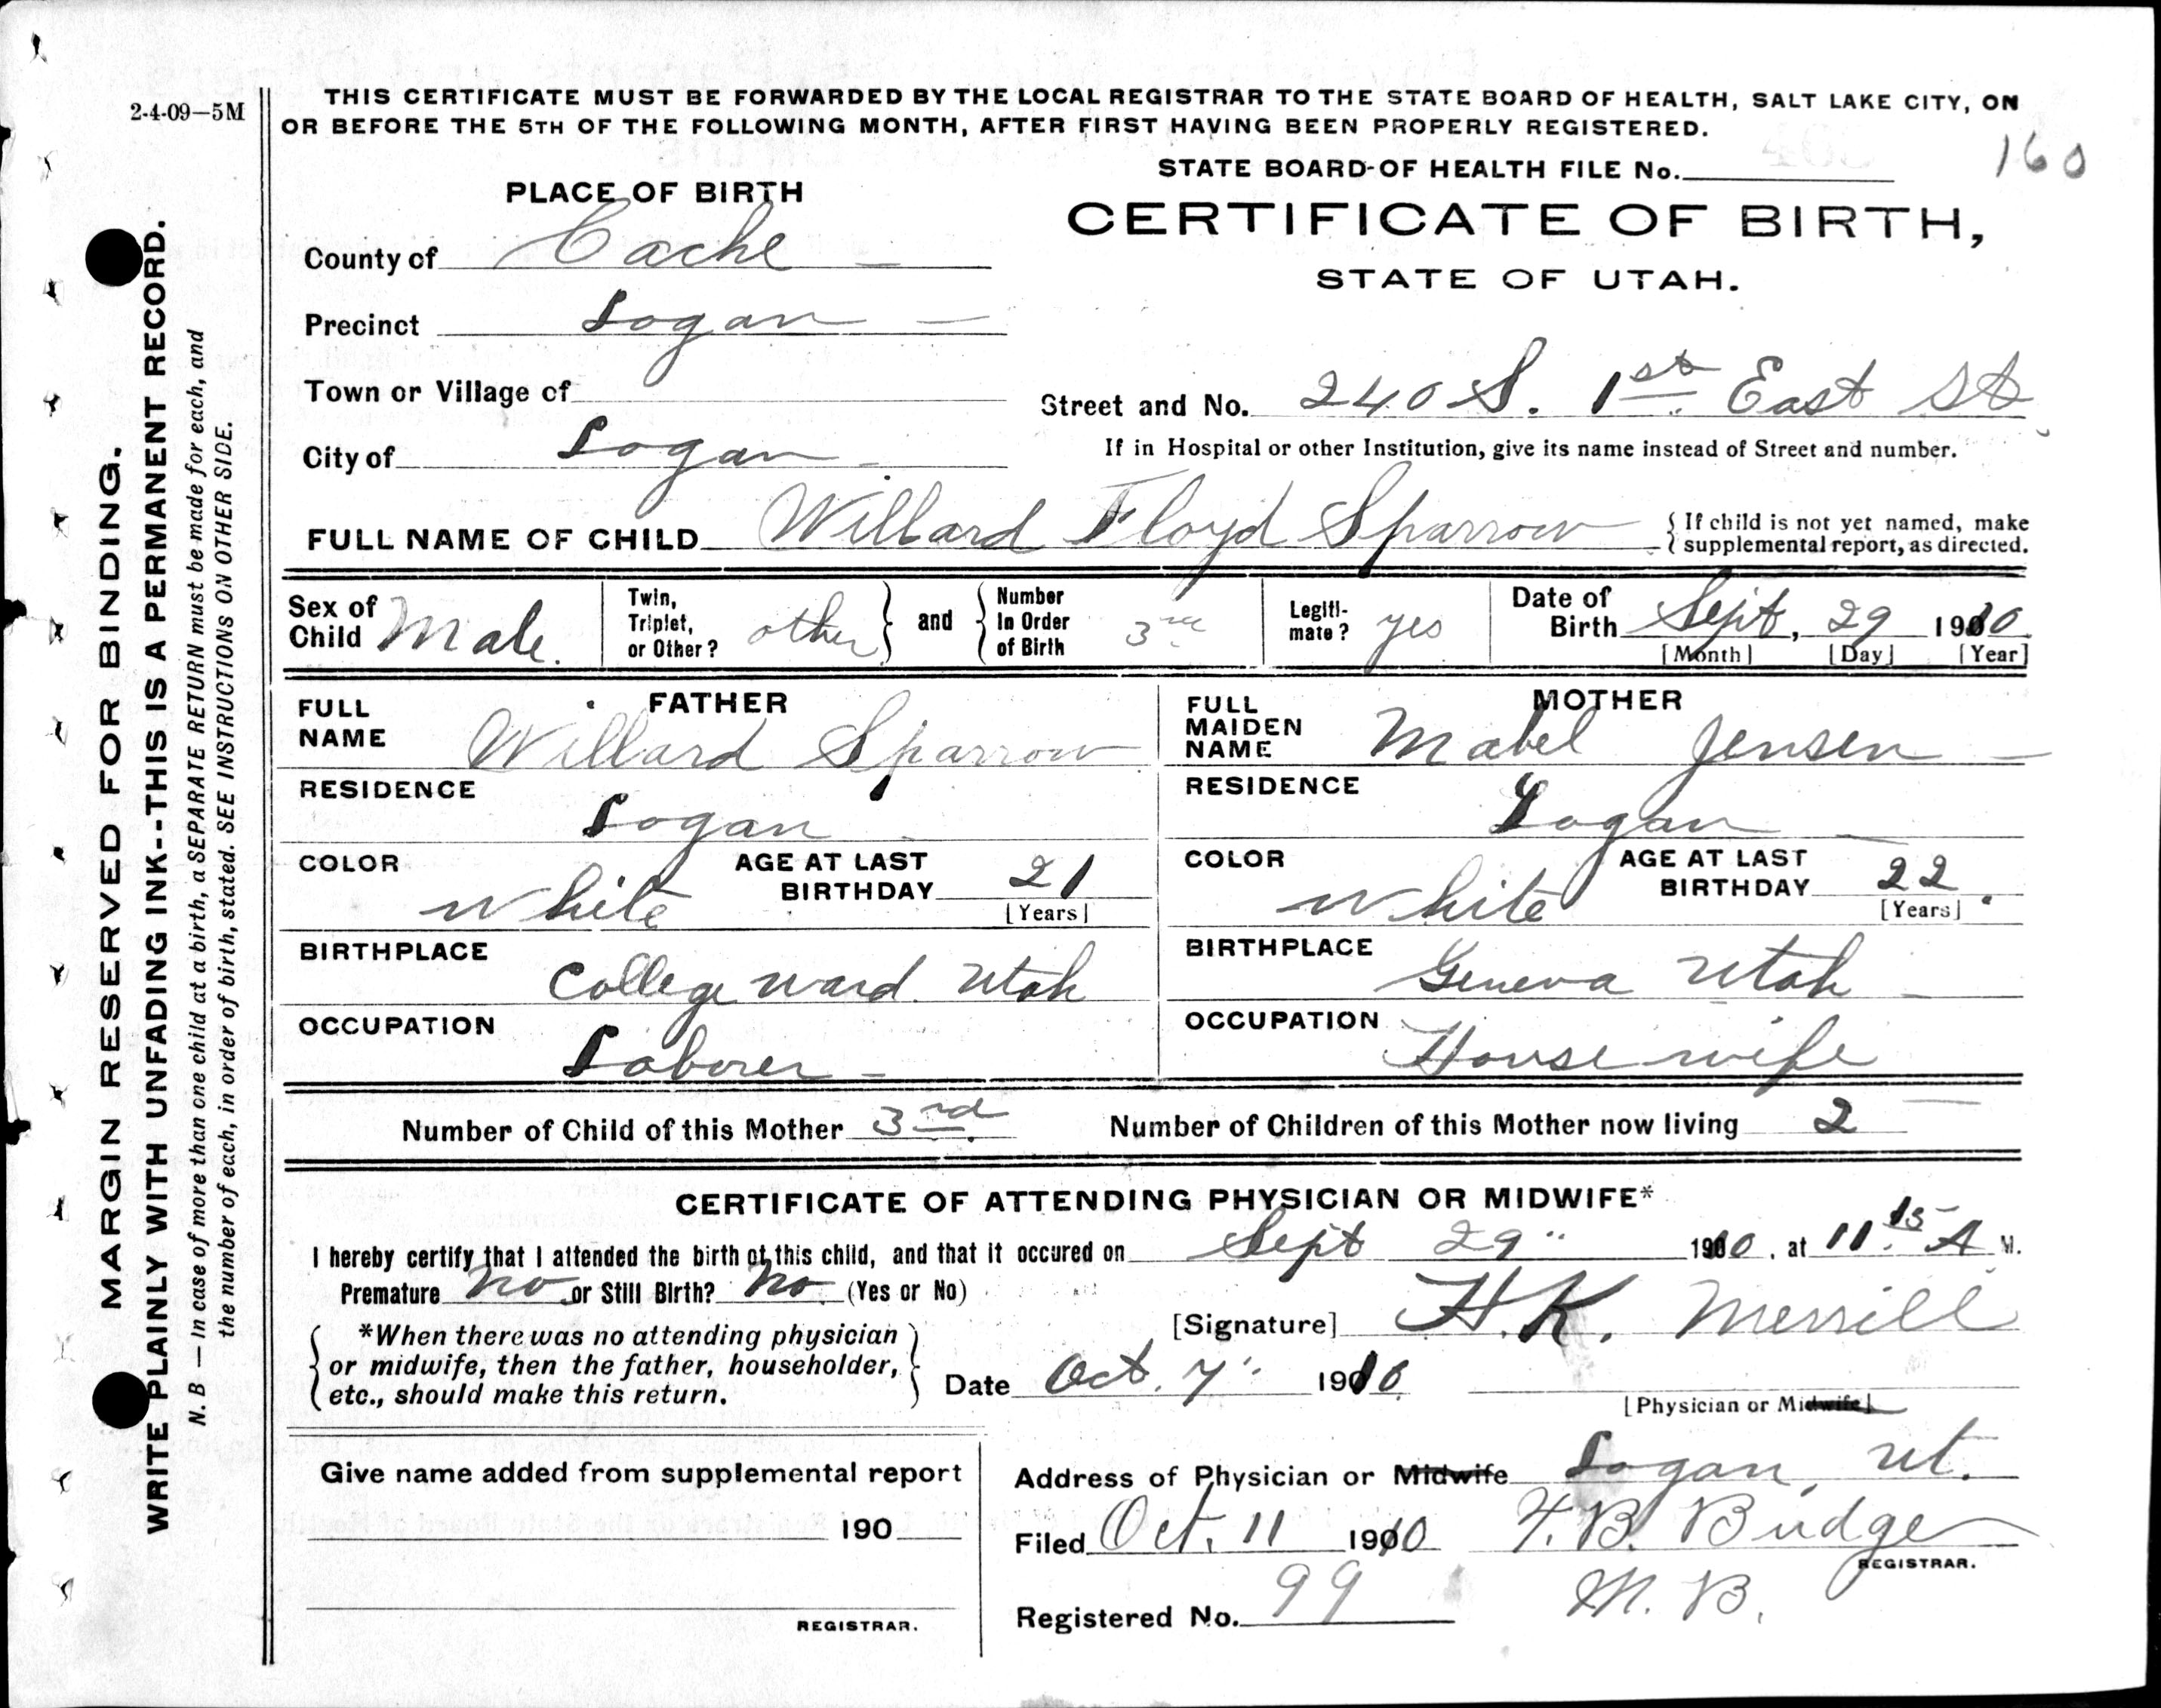 2-4-09—5M
THIS CERTIFICATE MUST BE FORWARDED BY THE LOCAL REGISTRAR TO THE STATE BOARD OF HEALTH, SALT LAKE CITY, ON
OR BEFORE THE 5TH OF THE FOLLOWING MONTH, AFTER FIRST HAVING BEEN PROPERLY REGISTERED.
STATE BOARD OF HEALTH FILE No. 160
PLACE OF BIRTH
CERTIFICATE OF BIRTH,
STATE OF UTAH.
County of Cache
Precinct Logan
Town or Village of
Street and No. 240 S. 1st East St
City of Logan
If in Hospital or other Institution, give its name instead of Street and number.
FULL NAME OF CHILD Willard Floyd Sparrow { If child is not yet named, make
supplemental report, as directed.
Sex of Child Male. Twin, Triplet, or Other? other and Number In Order of Birth 3rd Legitimate? yes Date of Birth Sept, 29 1910
[Month] [Day] [Year]
FATHER
FULL NAME Willard Sparrow
RESIDENCE Logan
COLOR White AGE AT LAST BIRTHDAY 21
[Years]
BIRTHPLACE College Ward Utah
OCCUPATION Laborer
MOTHER
FULL MAIDEN NAME Mabel Jensen
RESIDENCE Logan
COLOR White AGE AT LAST BIRTHDAY 22
[Years]
BIRTHPLACE Geneva Utah
OCCUPATION Housewife
Number of Child of this Mother 3rd Number of Children of this Mother now living 2
CERTIFICATE OF ATTENDING PHYSICIAN OR MIDWIFE*
I hereby certify that I attended the birth of this child, and that it occured on Sept 29" 1910, at 11 15 A M.
Premature no or Still Birth? No. (Yes or No)
[Signature] H.K. Merrill
*When there was no attending physician
or midwife, then the father, householder,
etc., should make this return.
Date Oct. 7" 1910
[Physician or Midwife]
Give name added from supplemental report
190
REGISTRAR.
Address of Physician or Midwife Logan, Ut.
Filed Oct. 11 1910 F. B. Budge
REGISTRAR.
Registered No. 99 M. B.
MARGIN RESERVED FOR BINDING.
WRITE PLAINLY WITH UNFADING INK--THIS IS A PERMANENT RECORD.
N. B — In case of more than one child at a birth, a SEPARATE RETURN must be made for each, and
the number of each, in order of birth, stated. SEE INSTRUCTIONS ON OTHER SIDE.